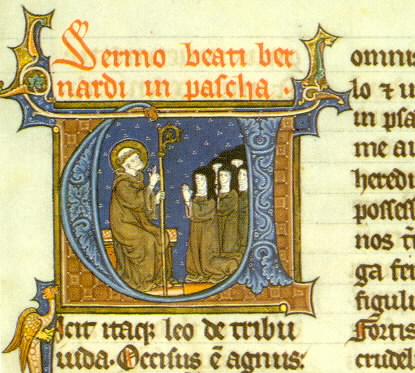 Sermo beati ber
nardi in pascha .
Uicit itaqꝫ leo de tribu
iuda. Occisus ē agnus:
omnis
lo ⁊ u
in psa
me au
heredi
possess
nos
ga fer
figuli
fortis
crudel